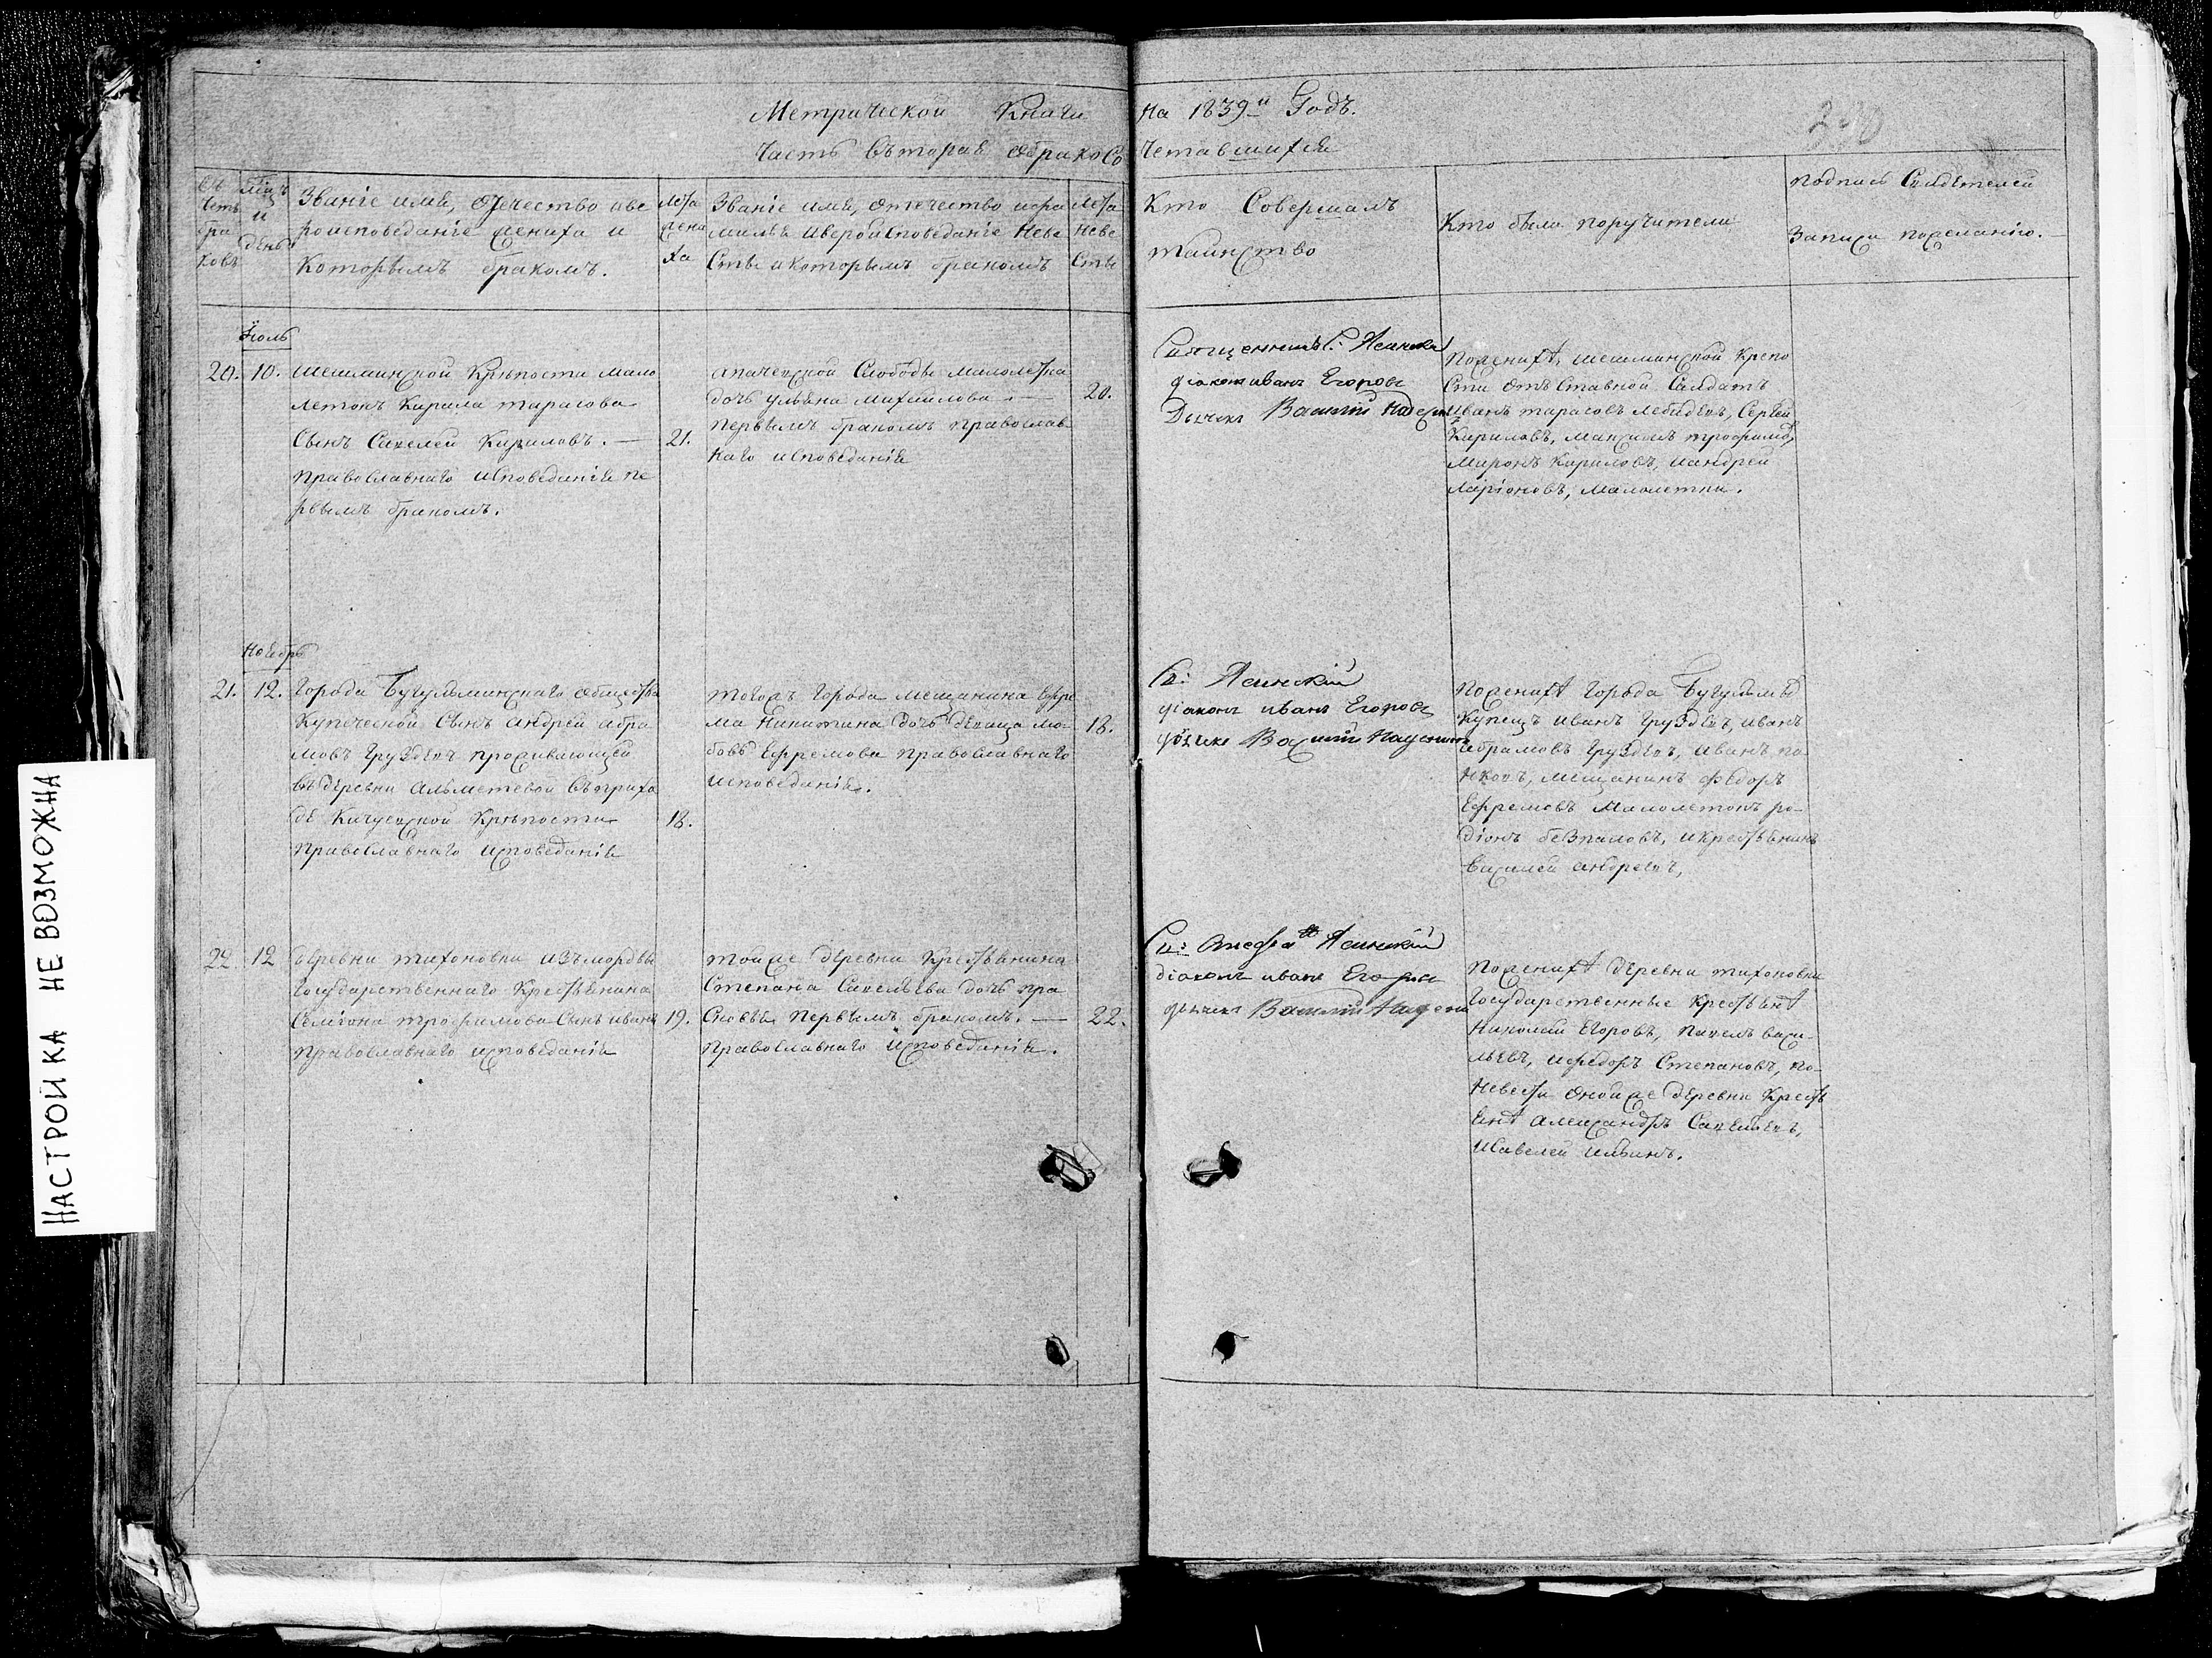 Метрической Книги
Часть вторая обракосо
На 1839й Годъ.
четавшихся
230
Сч
четъ
бра
ковъ
Мцъ
и
день
Званіе имя, отечество иве
роисповеданіе жениха и
которымъ бракомъ.
Лета
жени
ха
Званіе имя, отечество ифа
милія ивероисповеданіе Неве
сты икоторымъ бракомъ
Лета
Неве
сты
Кто Совершалъ
таинство
Кто были поручители
подпись Свидетелей
Записи пожеланію.
Іюль
20. 10.
Шешминской Крѣпости мало
летокъ Кирила тарасова
Сынъ Савелей Кириловъ. —
православнаго исповеданія пе
рвымъ бракомъ.
21.
слободы малолетка
дочь ульяна михаилова. —
первымъ бракомъ православ
наго исповеданія
20.
Священникъ С. Ясинскій
діаконъ иванъ Егоровъ
Дьячекъ Василий
Пожениху шешминской крепо
сти отъставной Салдатъ
иванъ тарасовъ лебедевъ, Сергей
Кириловъ, максимъ трофимовъ,
Миронъ Кириловъ, иандрей
Ларіоновъ, малолетки.
Ноябрь
21. 12.
Города Бугульминскаго общества
Купеческой сынъ андрей абра
мовъ Груздевъ проживающей
въ деревни альметевой въприхо
де Кичуевской Крѣпости
православнаго исповеданія
18.
тогожъ города мещанина ефре
ма Никитина дочь девица лю
бовь Ефремова православнаго
исповеданія.
18.
Св: Ясинскій
діаконъ иванъ Егоровъ
дьячекъ Василий
Пожениху города Бугульмы
Купецъ иванъ груздевъ, иванъ
абрамовъ груздевъ, иванъ по
мещанинъ федоръ
Ефремовъ малолетокъ ро
діонъ безпаловъ, икрестьянинъ
василей андреевъ,
22. 12
деревни тихоновки изъмордвы
государственнаго Крестьянина
Семіона трофимова Сынъ иванъ
православнаго исповеданія
19.
тойже деревни Крестьянина
Степана Савельева дочь пра
сковья первымъ бракомъ. —
православнаго исповеданія.
22.
Св: Ясинскій
діаконъ иванъ Егоровъ
дьячекъ Василий
Пожениху деревни тихоновки
государственные крестьяне
Николай Егоровъ, павелъ васи
льевъ, ифедоръ Степановъ, по
невести онойже деревни Кресть
яне александръ Савельевъ,
исавелей ильинъ.
НАСТРОЙКА НЕ ВОЗМОЖНА